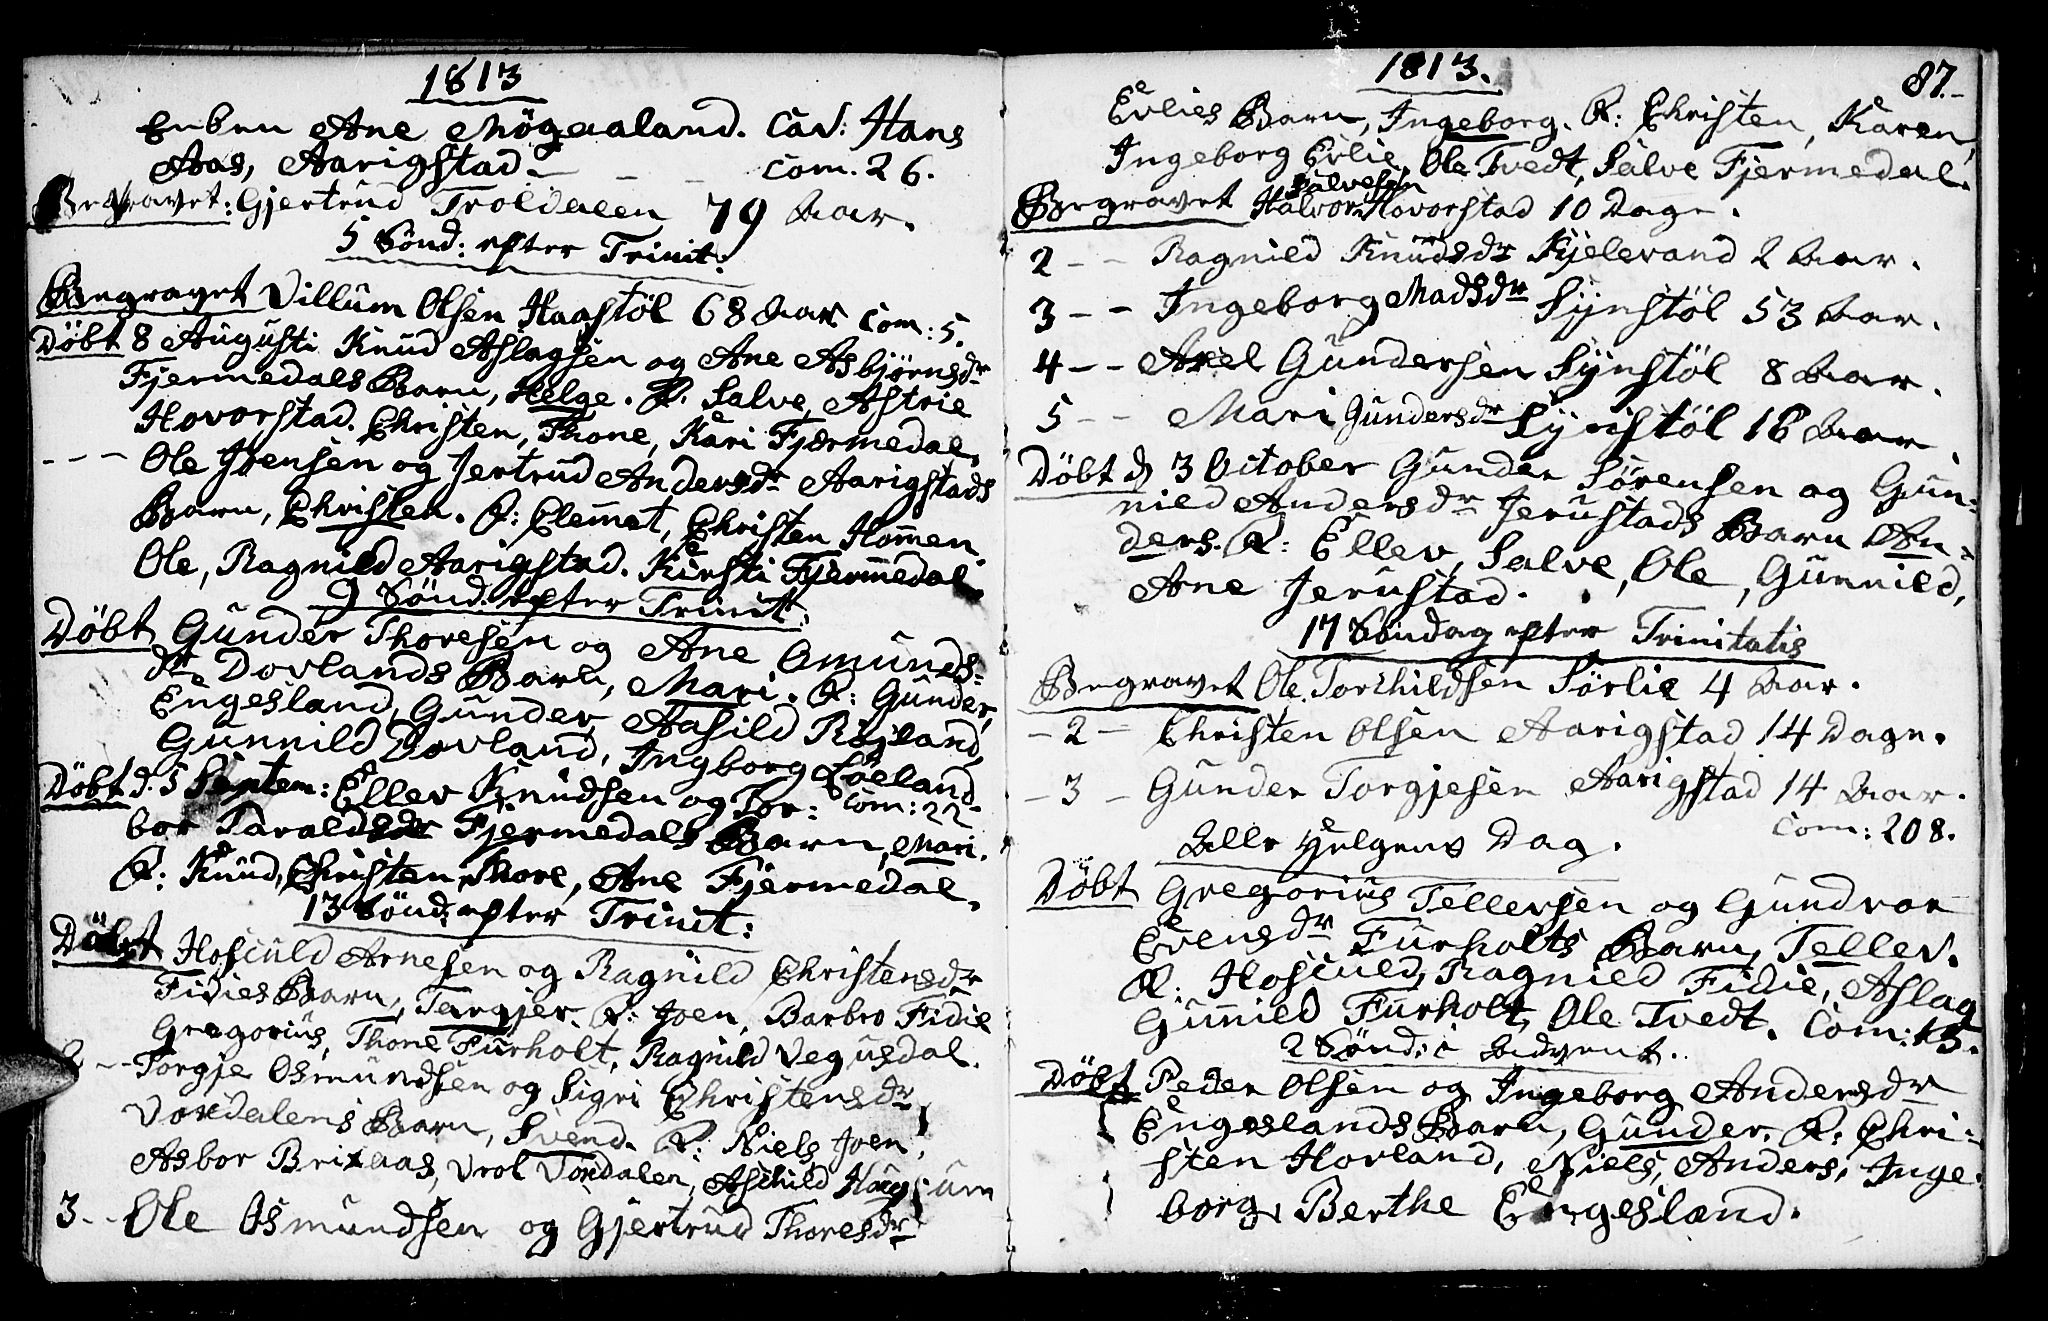 1813
Enken Ane Mögaaland. Cav: Hans
Aas, Aarigstad. - - - Com. 26.
Begravet: Gjertrud Troldalen 79 Aar.
5 Sönd: efter Trinit:
Begravet Villum Olsen Haastöl 68 Aar Com: 5.
Döbt 8 Augusti Knud Aslagsen og Ane Asbjörnsdr
Fjermedals Barn, Helge. F. Salve, Astrie
Hovorstad. Christen, Thone, Kari Fjærmedal.
- - - Ole Jensen og Jertrud Andersdr Aarigstads
Barn, Christen. F: Clemet, Christen Homen
Ole, Ragnild Aarigstad. Kirsti Fjermedal.
9 Sönd. efter Trinit:
Döbt Gunder Thoresen og Ane Omunds-
dr Dovlands Barn, Mari. F: Gunder,
Engesland, Gunder, Aasild Röjland,
Gunnild Dovland, Ingborg Löeland.
Döbt d. 5 Septem: Ellev Knudsen og Tor- Com: 22
bor Taraldsdr Fjermedals Barn, Mari.
F: Knud, Christen, Thore, Ane Fjermedal.
13 Sönd: efter Trinit:
Döbt Hosculd Arnesen og Ragnild Christensdr
Fidies Barn, Targjer. F: Joen, Barbro Fidie
Gregorius, Thone Furholt, Ragnild Vegusdal.
2 - - Torgje Osmundsen og Sigri Christensdr
Vordalens Barn, Svend. F: Niels, Joen,
Asbor Brixaas, Vrol Vordalen, Aschild Haug um
3 - - Ole Osmundsen og Gjertrud Thoresdr
1813. 87.-
Evlies Barn, Ingeborg. F: Christen, Karen,
Ingeborg Evlie, Ole Tvedt, Salve Fjermedal.
Salvesen
Begravet Halvor Hovorstad 10 Dage.
2 - - Ragnild Knudsdr Kjelevand 2 Aar.
3 - - Ingeborg Madsdr Synstöl 53 Aar.
4 - - Axel Gundersen Synstöl 8 Aar.
5 - - Mari Gundersdr Synstöl 16 Aar.
Döbt d 3 October Gunder Sörensen og Gun-
nild Andersdr Jerustads Barn An-
ders. F: Ellev, Salve, Ole, Gunnild,
Ane Jerustad.
17 Söndag efter Trinitatis
Begravet Ole Torchildsen Sörlie 4 Aar.
- 2 - Christen Olsen Aarigstad 14 Dage.
- 3 - Gunder Torgjesen Aarigstad 14 Aar.
Com: 208.
Alle Helgens Dag.
Döbt Gregorius Tellevsen og Gundvor
Evensdr Furholts Barn, Tellev.
F: Hosculd, Ragnild Fidie, Aslag
Gunnild Furholt, Ole Tvedt. Com: 15.
2 Sönd: i Advent.
Döbt Peder Olsen og Ingeborg Andersdr
Engeslands Barn, Gunder. F: Chri-
sten Hovland, Niels, Anders, Inge-
borg, Berthe Engesland.